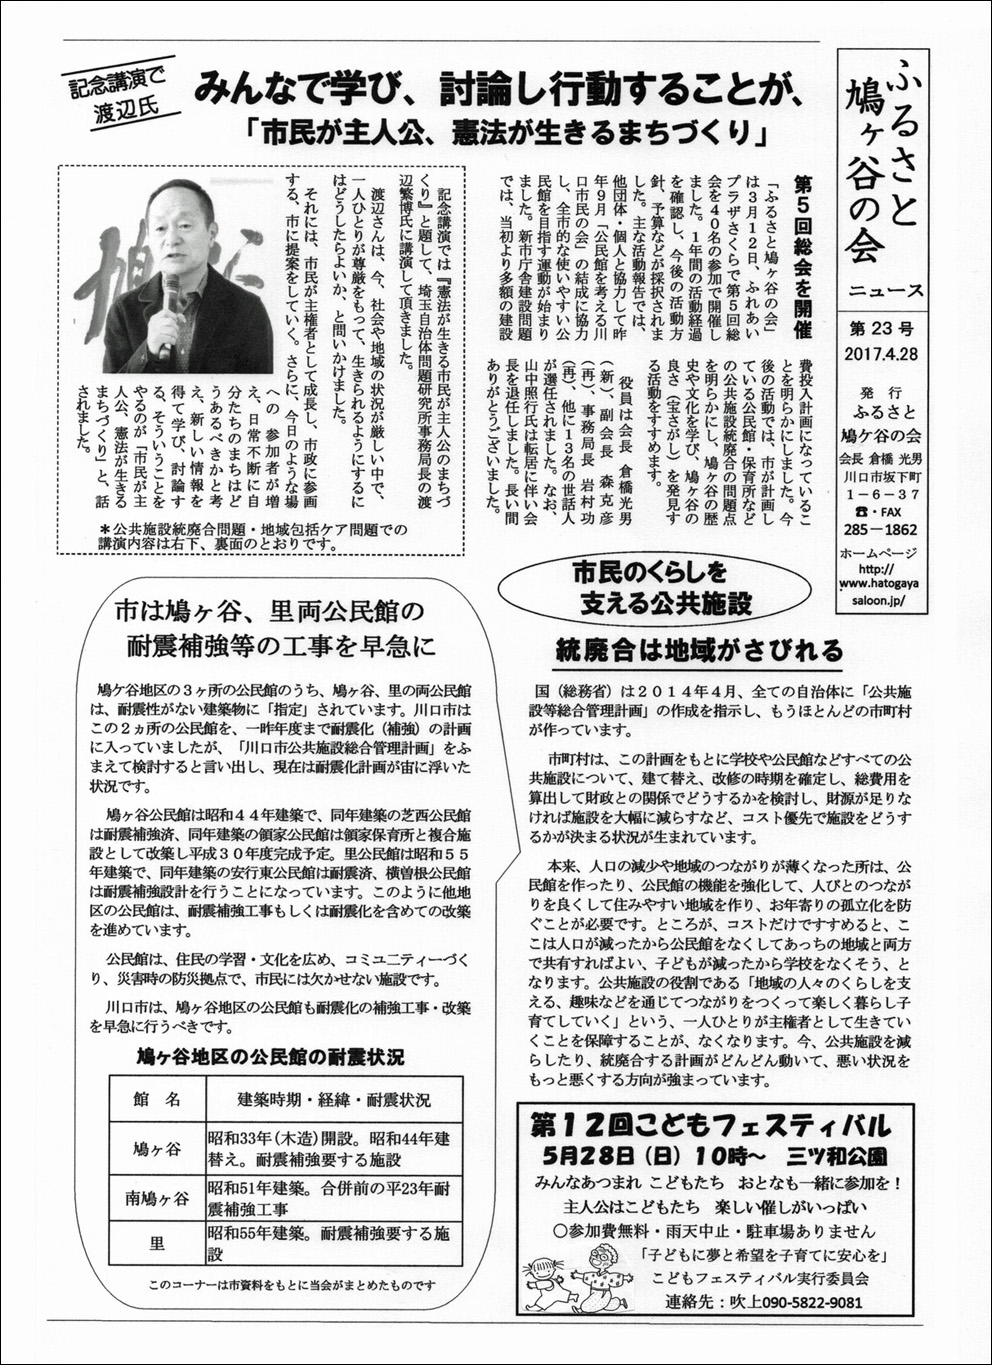 ふるさと
鳩ヶ谷の会
ニュース
第23号
2017.4.28
発行
ふるさと
鳩ケ谷の会
会長 倉橋 光男
川口市坂下町
1-6-37
☎・FAX
285-1862
ホームページ
http://
www.hatogaya
saloon.jp/
記念講演で
渡辺氏
みんなで学び、討論し行動することが、
「市民が主人公、憲法が生きるまちづくり」
第5回総会を開催
「ふるさと鳩ヶ谷の会」
は3月12日、ふれあい
プラザさくらで第5回総
会を40名の参加で開催し
ました。1年間の活動経過
を確認し、今後の活動方
針、予算などが採択されま
した。主な活動報告では、
他団体・個人と協力して昨
年9月「公民館を考える川
口市民の会」の結成に協力
し、全市的な使いやすい公
民館を目指す運動が始まり
ました。新市庁舎建設問題
では、当初より多額の建設
費投入計画になっているこ
とを明らかにしました。今
後の活動では、市が計画し
ている公民館・保育所など
の公共施設統廃合の問題点
を明らかにし、鳩ヶ谷の歴
史や文化を学び、鳩ヶ谷の
良さ(宝さがし)を発見す
る活動をすすめます。
役員は会長 倉橋光男
(新)、副会長 森克彦
(再)、事務局長 岩村功
(再)、他に13名の世話人
が選任されました。なお、
山中照行氏は転居に伴い会
長を退任しました。長い間
ありがとうございました。
記念講演では『憲法が生きる市民が主人公のまちづ
くり』と題して、埼玉自治体問題研究所事務局長の渡
辺繁博氏に講演して頂きました。
渡辺さんは、今、社会や地域の状況が厳しい中で、
一人ひとりが尊厳をもって、生きられるようにするに
はどうしたらよいか、と問いかけました。
それには、市民が主権者として成長し、市政に参画
する、市に提案をしていく。さらに、今日のような場
への 参加者が増
え、日常不断に自
分たちのまちはど
うあるべきかと考
え、新しい情報を
得て学び、討論す
る、そういうことを
やるのが「市民が主
人公、憲法が生きる
まちづくり」と、話
されました。
*公共施設統廃合問題・地域包括ケア問題での
講演内容は右下、裏面のとおりです。
市民のくらしを
支える公共施設
統廃合は地域がさびれる
国(総務省)は2014年4月、全ての自治体に「公共施
設等総合管理計画」の作成を指示し、もうほとんどの市町村
が作っています。
市町村は、この計画をもとに学校や公民館などすべての公
共施設について、建て替え、改修の時期を確定し、総費用を
算出して財政との関係でどうするかを検討し、財源が足りな
ければ施設を大幅に減らすなど、コスト優先で施設をどうす
るかが決まる状況が生まれています。
本来、人口の減少や地域のつながりが薄くなった所は、公
民館を作ったり、公民館の機能を強化して、人びとのつなが
りを良くして住みやすい地域を作り、お年寄りの孤立化を防
ぐことが必要です。ところが、コストだけですすめると、こ
こは人口が減ったから公民館をなくしてあっちの地域と両方
で共有すればよい、子どもが減ったから学校をなくそう、と
なります。公共施設の役割である「地域の人々のくらしを支
える、趣味などを通じてつながりをつくって楽しく暮らし子
育てしていく」という、一人ひとりが主権者として生きてい
くことを保障することが、なくなります。今、公共施設を減
らしたり、統廃合する計画がどんどん動いて、悪い状況を
もっと悪くする方向が強まっています。
市は鳩ヶ谷、里両公民館の
耐震補強等の工事を早急に
鳩ケ谷地区の3ヶ所の公民館のうち、鳩ヶ谷、里の両公民館
は、耐震性がない建築物に「指定」されています。川口市は
この2ヵ所の公民館を、一昨年度まで耐震化(補強)の計画
に入っていましたが、「川口市公共施設総合管理計画」をふ
まえて検討すると言い出し、現在は耐震化計画が宙に浮いた
状況です。
鳩ヶ谷公民館は昭和44年建築で、同年建築の芝西公民館
は耐震補強済、同年建築の領家公民館は領家保育所と複合施
設として改築し平成30年度完成予定。里公民館は昭和55
年建築で、同年建築の安行東公民館は耐震済、横曽根公民館
は耐震補強設計を行うことになっています。このように他地
区の公民館は、耐震補強工事もしくは耐震化を含めての改築
を進めています。
公民館は、住民の学習・文化を広め、コミユニティーづく
り、災害時の防災拠点で、市民には欠かせない施設です。
川口市は、鳩ヶ谷地区の公民館も耐震化の補強工事・改築
を早急に行うべきです。
鳩ヶ谷地区の公民館の耐震状況
館 名 建築時期・経緯・耐震状況
鳩ヶ谷 昭和33年(木造)開設。昭和44年建
替え。耐震補強要する施設
南鳩ヶ谷 昭和51年建築。合併前の平23年耐
震補強工事
里 昭和55年建築。耐震補強要する施
設
このコーナーは市資料をもとに当会がまとめたものです
第12回こどもフェスティバル
5月28日(日)10時~ 三ツ和公園
みんなあつまれ こどもたち おとなも一緒に参加を!
主人公はこどもたち 楽しい催しがいっぱい
○参加費無料・雨天中止・駐車場ありません
「子どもに夢と希望を子育てに安心を」
こどもフェスティバル実行委員会
連絡先:吹上090-5822-9081